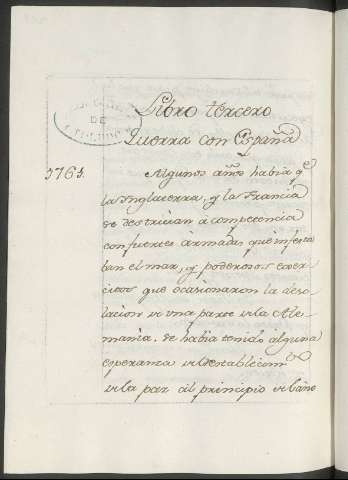 Libro tercero
Guerra con España
1761.
Algunos años habia q.e
la Ynglaterra, y la Francia
se destruian à competencia
con fuertes armadas que infesta
ban el mar, y poderosos exer-
citos que ocasionaron la deso
lacion de una parte de la Ale
mania. Se habia tenido alguna
esperanza del establecim.to
de la paz al principio del año